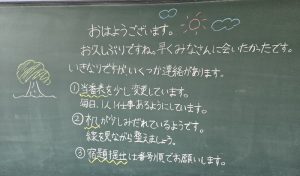 おはようございます。
お久しぶりですね。早くみなさんに会いたかったです。
いきなりですがいくつか連絡があります。
①当番表を少し変更しています。
毎日、1人1仕事あるようにしています。
②机が少しみだれているようです。
線を見ながら整えましょう。
③宿題提出は番号順でお願いします。